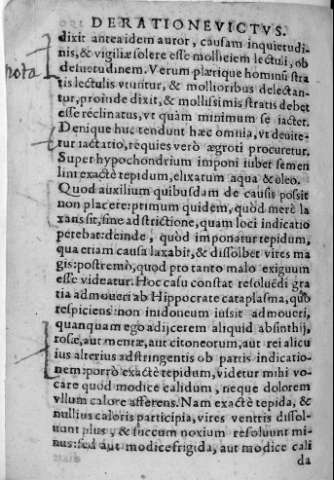 DE RATIONE VICTVS.
dixit antea idem autor, causam inquietudi-
nis, & vigiliæ solere esse molliciem lectuli, ob
desuetudinem. Verum plærique hominũ stra
nota
tis lectulis vtuntur, & mollioribus delectan-
tur, proinde dixit, & mollissimis stratis debet
esse reclinatus, vt quàm minimum se iactet.
Denique huc tendunt hæc omnia, vt deuite-
tur iactatio, requies verò ægroti procuretur.
Super hypochondrium imponi iubet semen
lini exactè tepidum, elixatum aqua & oleo.
Quod auxilium quibusdam de causis possit
non placere: primum quidem, quòd merè la
xans sit, sine adstrictione, quam loci indicatio
petebat: deinde, quòd imponatur tepidum,
qua etiam causa laxabit, & dissolbet vires ma
gis: postremò, quod pro tanto malo exiguum
esse videatur. Hoc casu constat resoluẽdi gra
tia admoueri ab Hippocrate cataplasma, quo
respiciens non inidoneum iussit admoueri,
quanquam ego adijcerem aliquid absinthij,
rosæ, aut mentæ, aut citoneorum, aut rei alicu
ius alterius adstringentis ob partis indicatio-
nem: porrò exactè tepidum, videtur mihi vo-
care quod modice calidum, neque dolorem
vllum calore afferens. Nam exactè tepida, &
nullius caloris participia, vires ventris dissol-
uunt plus, & succum noxium resoluunt mi-
nus: sed aut modice frigida, aut modice cali
da